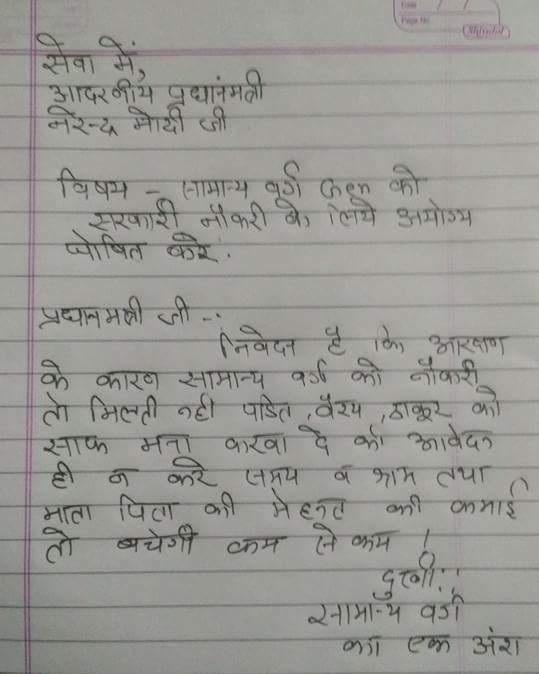 Date
Page No.
सेवा में,
आदरणीय प्रधानंमत्री
नरेन्द्र मोदी जी
विषय - सामान्य वर्ग वालो को
सरकारी नौकरी के लिये अयोग्य
घोषित करे.
प्रधानमत्री जी -:
निवेदन है कि आरक्षण
के कारण सामान्य वर्ग को नौकरी
तो मिलती नही पंडित, वैश्य, ठाकुर को
साफ मना करवा दे की आवेदन
ही न करे समय व श्रम तथा
माता पिता की मेहनत की कमाई
तो बचेगी कम से कम !
दुःखी :
सामान्य वर्ग
का एक अंश